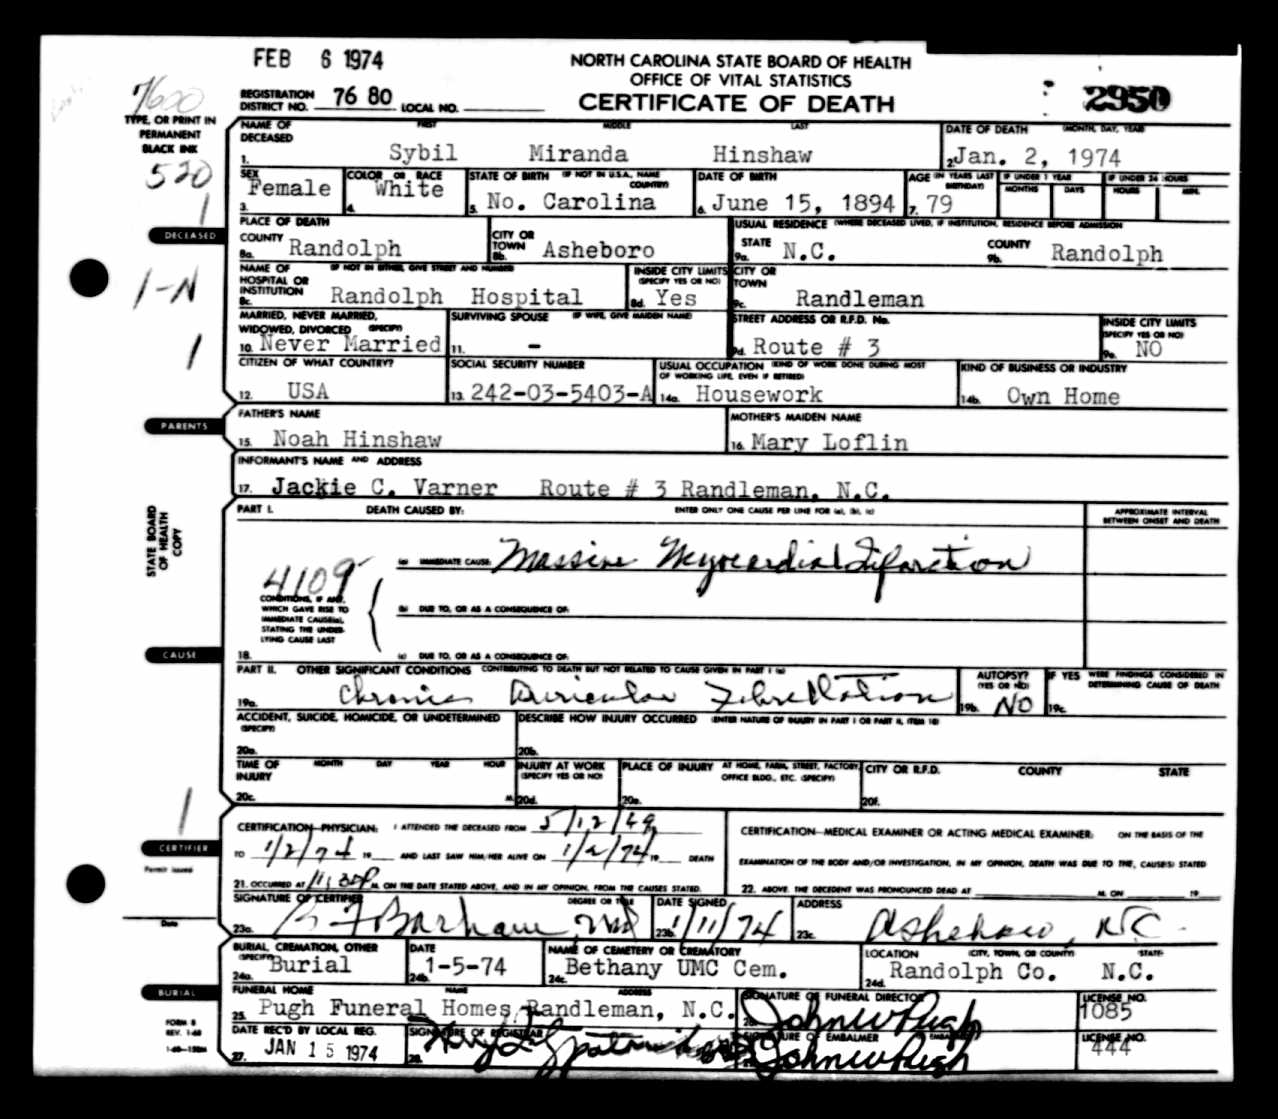 FEB 6 1974
NORTH CAROLINA STATE BOARD OF HEALTH
OFFICE OF VITAL STATISTICS
CERTIFICATE OF DEATH
2950
7600
REGISTRATION DISTRICT NO. 76 80 LOCAL NO.
TYPE, OR PRINT IN PERMANENT BLACK INK
520
1
NAME OF DECEASED FIRST MIDDLE LAST
1. Sybil Miranda Hinshaw
DATE OF DEATH (MONTH, DAY, YEAR)
2. Jan. 2, 1974
SEX
3. Female
COLOR OR RACE
4. White
STATE OF BIRTH (IF NOT IN U.S.A., NAME COUNTRY)
5. No. Carolina
DATE OF BIRTH
6. June 15, 1894
AGE (IN YEARS LAST BIRTHDAY)
7. 79
IF UNDER 1 YEAR MONTHS DAYS
IF UNDER 24 HOURS HOURS MIN.
DECEASED
PLACE OF DEATH
COUNTY
8a. Randolph
CITY OR TOWN
8b. Asheboro
USUAL RESIDENCE (WHERE DECEASED LIVED, IF INSTITUTION, RESIDENCE BEFORE ADMISSION
STATE
9a. N.C.
COUNTY
9b. Randolph
1-N
NAME OF HOSPITAL OR INSTITUTION (IF NOT IN EITHER, GIVE STREET AND NUMBER)
8c. Randolph Hospital
INSIDE CITY LIMITS (SPECIFY YES OR NO)
8d. Yes
CITY OR TOWN
9c. Randleman
1
MARRIED, NEVER MARRIED, WIDOWED, DIVORCED (SPECIFY)
10. Never Married
SURVIVING SPOUSE (IF WIFE, GIVE MAIDEN NAME)
11. -
STREET ADDRESS OR R.F.D. No.
9d. Route # 3
INSIDE CITY LIMITS (SPECIFY YES OR NO)
9e. NO
CITIZEN OF WHAT COUNTRY?
12. USA
SOCIAL SECURITY NUMBER
13. 242-03-5403-A
USUAL OCCUPATION (KIND OF WORK DONE DURING MOST OF WORKING LIFE, EVEN IF RETIRED)
14a. Housework
KIND OF BUSINESS OR INDUSTRY
14b. Own Home
PARENTS
FATHER'S NAME
15. Noah Hinshaw
MOTHER'S MAIDEN NAME
16. Mary Loflin
INFORMANT'S NAME AND ADDRESS
17. Jackie C. Varner Route # 3 Randleman, N.C.
STATE BOARD OF HEALTH COPY
PART I. DEATH CAUSED BY: ENTER ONLY ONE CAUSE PER LINE FOR (a), (b), (c)
APPROXIMATE INTERVAL BETWEEN ONSET AND DEATH
(a) IMMEDIATE CAUSE: Massive Myocardial Infarction
4109
CONDITIONS, IF ANY, WHICH GAVE RISE TO IMMEDIATE CAUSE(a), STATING THE UNDERLYING CAUSE LAST
(b) DUE TO, OR AS A CONSEQUENCE OF:
CAUSE
18. (c) DUE TO, OR AS A CONSEQUENCE OF:
PART II. OTHER SIGNIFICANT CONDITIONS CONTRIBUTING TO DEATH BUT NOT RELATED TO CAUSE GIVEN IN PART I (a)
19a. Chronic Auricular Fibrillation
AUTOPSY? (YES OR NO)
19b. NO
IF YES WERE FINDINGS CONSIDERED IN DETERMINING CAUSE OF DEATH
19c.
ACCIDENT, SUICIDE, HOMICIDE, OR UNDETERMINED (SPECIFY)
20a.
DESCRIBE HOW INJURY OCCURRED (ENTER NATURE OF INJURY IN PART I OR PART II, ITEM 18)
20b.
TIME OF INJURY MONTH DAY YEAR HOUR
20c. M.
INJURY AT WORK (SPECIFY YES OR NO)
20d.
PLACE OF INJURY AT HOME, FARM, STREET, FACTORY, OFFICE BLDG., ETC. (SPECIFY)
20e.
CITY OR R.F.D. COUNTY STATE
20f.
1
CERTIFIER
Permit issued
Date
CERTIFICATION—PHYSICIAN: I ATTENDED THE DECEASED FROM 5/12/69
TO 1/2/74 19 AND LAST SAW HIM/HER ALIVE ON 1/2/74 19 DEATH
21. OCCURRED AT 11:30P M. ON THE DATE STATED ABOVE, AND IN MY OPINION, FROM THE CAUSES STATED.
CERTIFICATION—MEDICAL EXAMINER OR ACTING MEDICAL EXAMINER: ON THE BASIS OF THE
EXAMINATION OF THE BODY AND/OR INVESTIGATION, IN MY OPINION, DEATH WAS DUE TO THE, CAUSE(S) STATED
22. ABOVE. THE DECEDENT WAS PRONOUNCED DEAD AT M. ON 19
SIGNATURE OF CERTIFIER DEGREE OR TITLE
23a. Barham, MD
DATE SIGNED
23b. 1/11/74
ADDRESS
23c. Asheboro, NC
BURIAL
BURIAL, CREMATION, OTHER (SPECIFY)
24a. Burial
DATE
24b. 1-5-74
NAME OF CEMETERY OR CREMATORY
24c. Bethany UMC Cem.
LOCATION (CITY, TOWN, OR COUNTY) (STATE)
24d. Randolph Co. N.C.
FUNERAL HOME NAME ADDRESS
25. Pugh Funeral Homes, Randleman, N.C.
SIGNATURE OF FUNERAL DIRECTOR
26. John W Pugh
LICENSE NO.
1085
FORM 8
REV. 1-68
DATE REC'D BY LOCAL REG.
27. JAN 15 1974
SIGNATURE OF REGISTRAR
28.
SIGNATURE OF EMBALMER
John W Pugh
LICENSE NO.
444